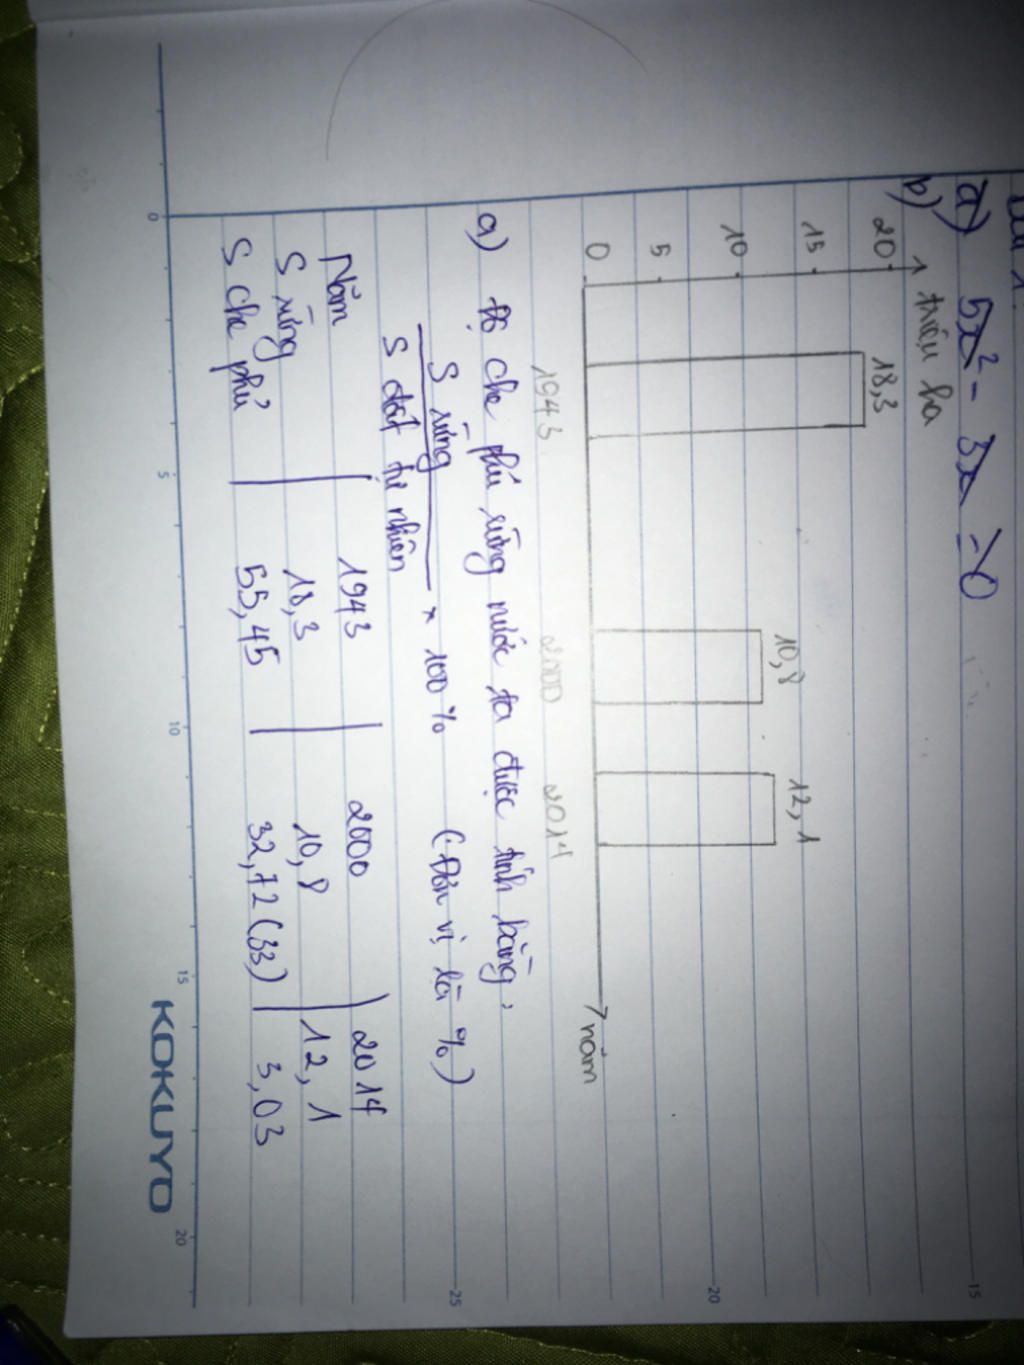 a) 5x² - 3x = 0
b)
triệu ha
20
15
10
5
0
18,3
10,8
12,1
1943
2000
2014
năm
a) Độ che phủ rừng nước ta được tính bằng:
S rừng
S đất tự nhiên
× 100% (Đơn vị là %)
Năm | 1943 | 2000 | 2014
S rừng | 18,3 | 10,8 | 12,1
S che phủ | 55,45 | 32,72 (33) | 3,03
0 5 10 15 20
15
20
25
KOKUYO